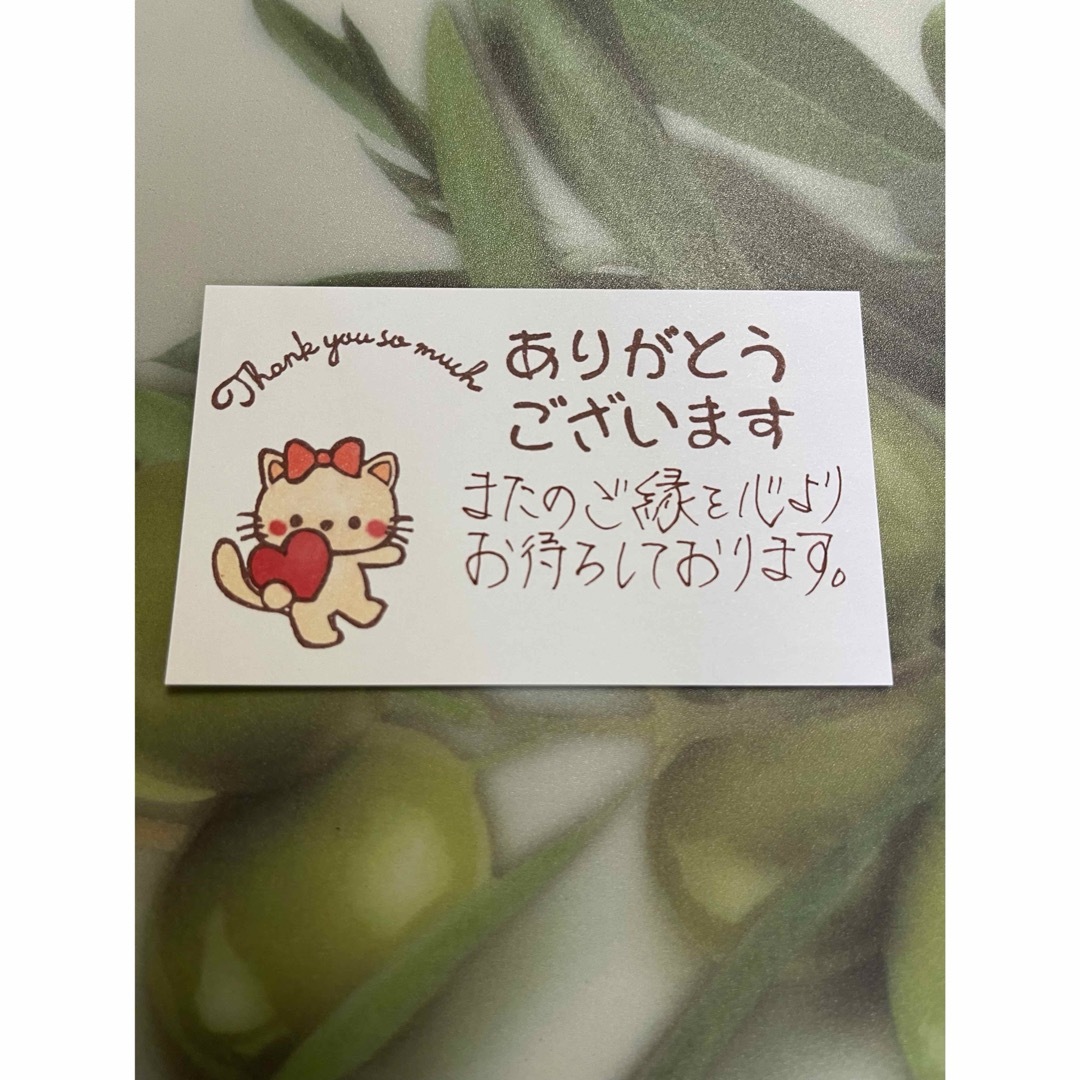 Thank you so much
ありがとう
ございます
またのご縁を心より
お待ちしております。